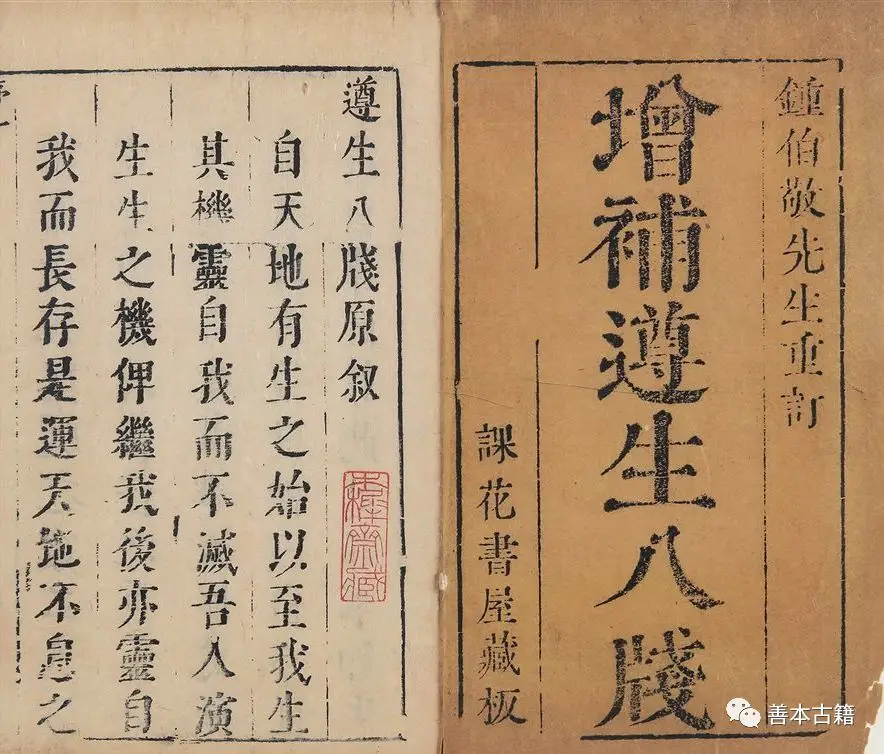 鍾伯敬先生重訂
增補遵生八牋
課花書屋藏板
遵生八牋原叙
齋藏
自天地有生之始以至我生
其機靈自我而不滅吾人演
生生之機俾繼我後亦靈自
我而長存是運天地不息之
善本古籍